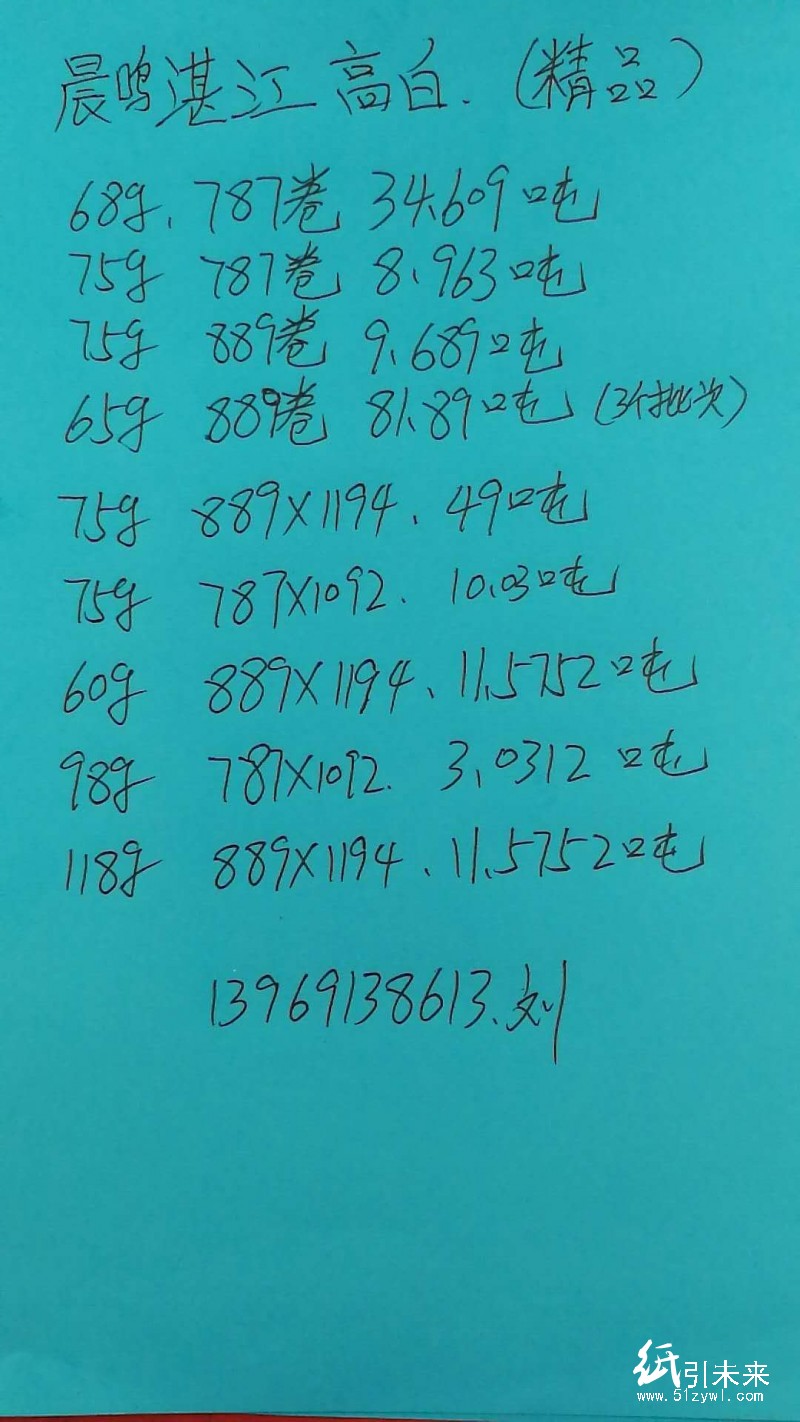 晨鸣湛江 高白.（精品）
68g. 787卷 34.609吨
75g 787卷 8.963吨
75g 889卷 9.689吨
65g 889卷 81.89吨（3个批次）
75g 889X1194. 49吨
75g 787X1092. 10.03吨
60g 889X1194. 11.5752吨
98g 787X1092. 3.0312吨
118g 889X1194. 11.5752吨
13969138613.刘
纸引未来
www.51zywl.com